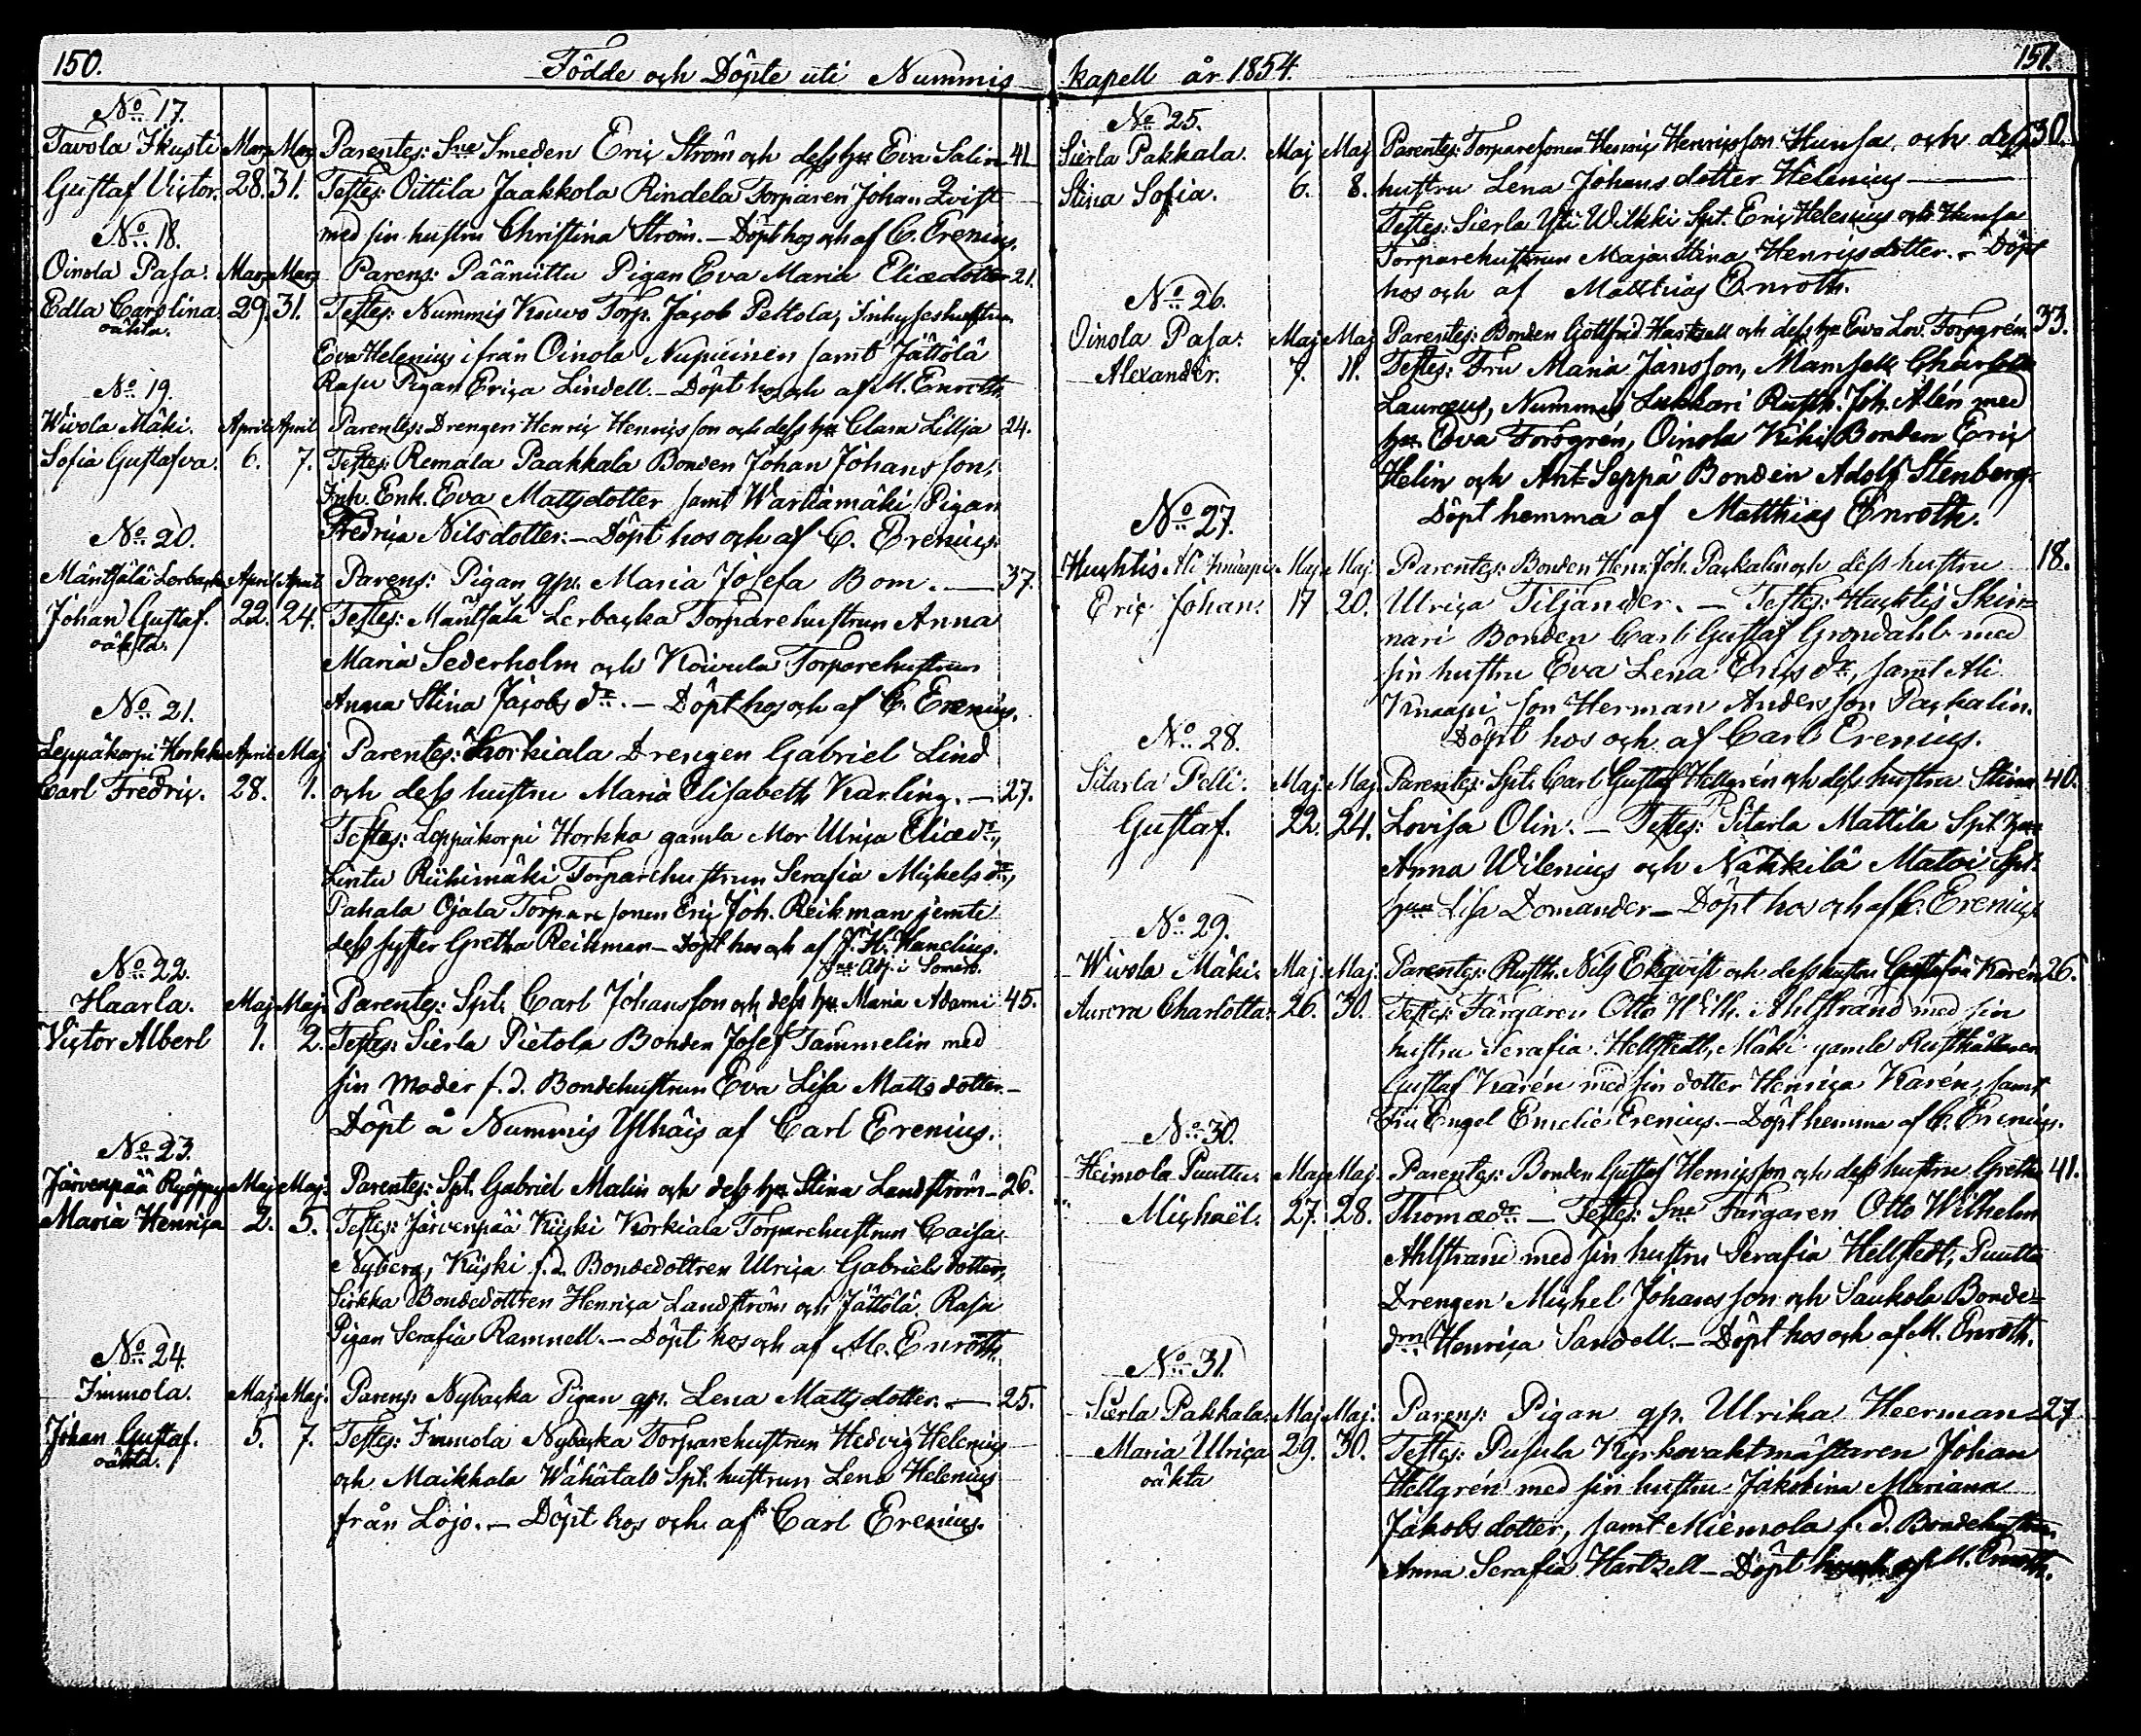 150.
Födde och Döpte uti Nummis
No 17.
Tavola Ikusti Mars Mars Parentes: Sne Smeden Eriç Ström och dess hu Eva Salin 41
Gustaf Viçtor. 28. 31. Testes: Oittila Jaakkola Rindela Torparen Johan Qvist
med sin hustru Christina Ström. — Döpt hos och af C. Erenius.
No 18.
Oinola Pasa. Mars Mars Parens: Pääniittu Pigan Eva Maria Eliædotter 21.
Edla Carolina. 29. 31. Testes: Nummis Kouvo Torp. Jaçob Peltola, Inhyseshustrun
oäkta.
Eva Helenius ifrån Oinola Nupuinen samt Jättölä
Rasu Pigan Eriça Lindell. — Döpt hos och af M. Enroth.
No 19.
Wivola Mäki. April April Parentes: Drengen Henriç Henriçsson och dess hu Clara Lillja 24.
Sofia Gustafva. 6. 7. Testes: Remala Paakkala Bonden Johan Johansson,
Inh. Enk. Eva Mattsdotter samt Wartiamäki Pigan
Fredriça Nilsdotter. — Döpt hos och af C. Erenius.
No 20.
Mäntsälä Lerbacka April April Parens: Pigan gps. Maria Josefa Bom. — 37.
Johan Gustaf. 22. 24. Testes: Mäntsälä Lerbaçka Torparehustrun Anna
oäkta.
Maria Sederholm och Koivula Torparehustrun
Anna Stina Jaçobs dr. — Döpt hos och af C. Erenius.
No 21.
Leppäkorpi Horkka April Maj Parentes: Korkiala Drengen Gabriel Lind
Carl Fredriç. 28. 1. och dess hustru Maria Elisabeth Karling. — 27.
Testes: Leppäkorpi Horkka gamla Mor Ulriça Eliædr.,
Lintu Riihimäki Torparehustrun Serafia Michels dr.,
Pahala Ojala Torparesonen Eriç Joh. Reikman jemte
dess syster Gretha Reikman — Döpt hos och af J. H. Hanelius.
Adj. i Somero.
No 22.
Haarla. Maj. Maj. Parentes: Spt. Carl Johansson och dess hu Maria Adami 45.
Viçtor Albert 1. 2. Testes: Sierla Pietola Bonden Josef Tammelin med
sin Moder f. d. Bondehustrun Eva Lisa Matts dotter. —
Döpt å Nummis Ylhäis af Carl Erenius.
No 23.
Järvenpää Ryöppy Maj. Maj. Parentes: Spt. Gabriel Malin och dess hu Stina Landström — 26.
Maria Henriça 2. 5. Testes: Järvenpää Kiiski Korkiala Torparehustrun Caisa
Nyberg, Kiiski f. d. Bondedottren Ulriça Gabrielsdotter,
Sirkka Bondedottren Henriça Landström och Jättölä Rasu
Pigan Serafia Ramnell. — Döpt hos och af M. Enroth.
No 24.
Immola. Maj. Maj. Parens: Nybaçka Pigan gps. Lena Mattsdotter. — 25.
Johan Gustaf. 5. 7. Testes: Immola Nybaçka Torparehustrun Hedvig Helenius
oäkta.
och Maikkala Wähätalo Spt. hustrun Lena Helenius
från Lojo. — Döpt hos och af Carl Erenius.
kapell år 1854. 151.
No 25.
Sierla Pakkala. Maj Maj Parentes: Torparesonen Henriç Henriçsson Hunsa och dess 30.
Stina Sofia. 6. 8. hustru Lena Johansdotter Helenius —
Testes: Sierla Yli Wikki Spt. Eriç Helenius och Hunsa
Torparehustrun Maja Stina Henriçsdotter. — Döpt
hos och af Matthias Enroth.
No 26.
Oinola Pasa: Maj Maj Parentes: Bonden Gottfrid Hartzell och dess hu Eva Lov. Forsgrén. 33.
Alexander. 7. 11. Testes: Fru Maria Jansson, Mamsell Charlotta
Lauræus, Nummis Lukkari Rusth. Joh. Alén med
hu Eva Forsgrén, Oinola Kiiki Bonden Eriç
Helin och Ant-Seppä Bonden Adolf Stenberg.
Döpt hemma af Matthias Enroth.
No 27.
Huçhtis Ali Knaapi. Maj. Maj. Parentes: Bonden Henr. Joh. Paçkalin och dess hustru 18.
Eriç Johan. 17 20. Ulriça Tiljander. — Testes: Huçhtis Skin-
nari Bonden Carl Gustaf Grondahl med
sin hustru Eva Lena Eriçs dr., samt Ali
Knaapi son Herman Andersson Paçkalin.
Döpt hos och af Carl Erenius.
No 28.
Sitarla Pelli. Maj. Maj. Parentes: Spt. Carl Gustaf Hellgrén och dess hustru Stina 40.
Gustaf. 22. 24. Lovisa Olin. — Testes: Sitarla Mattila Spt. hun
Anna Wilenius och Näkkilä Matvi Spt.
hun Lisa Domander — Döpt hos och af C. Erenius
No 29.
Wivola Mäki. Maj. Maj. Parentes: Rusth. Nils Ekqvist och dess hustru Gustafva Karén 26.
Aurora Charlotta. 26. 30. Testes: Färgaren Otto Wilh. Ahlstrand med sin
hustru Serafia Hellstedt, Mäki gamle Rusthållaren
Gustaf Karén med sin dotter Henriça Karén, samt
Fru Engel Emelie Erenius. — Döpt hemma af C. Erenius.
No 30.
Heimola Puuttu. Maj. Maj. Parentes: Bonden Gustaf Henriçsson och dess hustru Gretha 41.
Miçhaël. 27. 28. Thomædr. — Testes: Sne Färgaren Otto Wilhelm
Ahlstrand med sin hustru Serafia Hellstedt, Puuttu
Drengen Miçhel Johansson och Saukola Bonde-
drn Henriça Sandell. — Döpt hos och af M. Enroth.
No 31.
Sierla Pakkala. Maj. Maj. Parens: Pigan gps. Ulrika Heerman — 27
Maria Ulriça 29. 30. Testes: Pusula Kyrkovaktmästaren Johan
oäkta
Hellgrén med sin hustru Jakobina Mariana
Jakobsdotter, samt Miemola f. d. Bondehustrun
Anna Serafia Hartzell — Döpt hos och af M. Enroth.